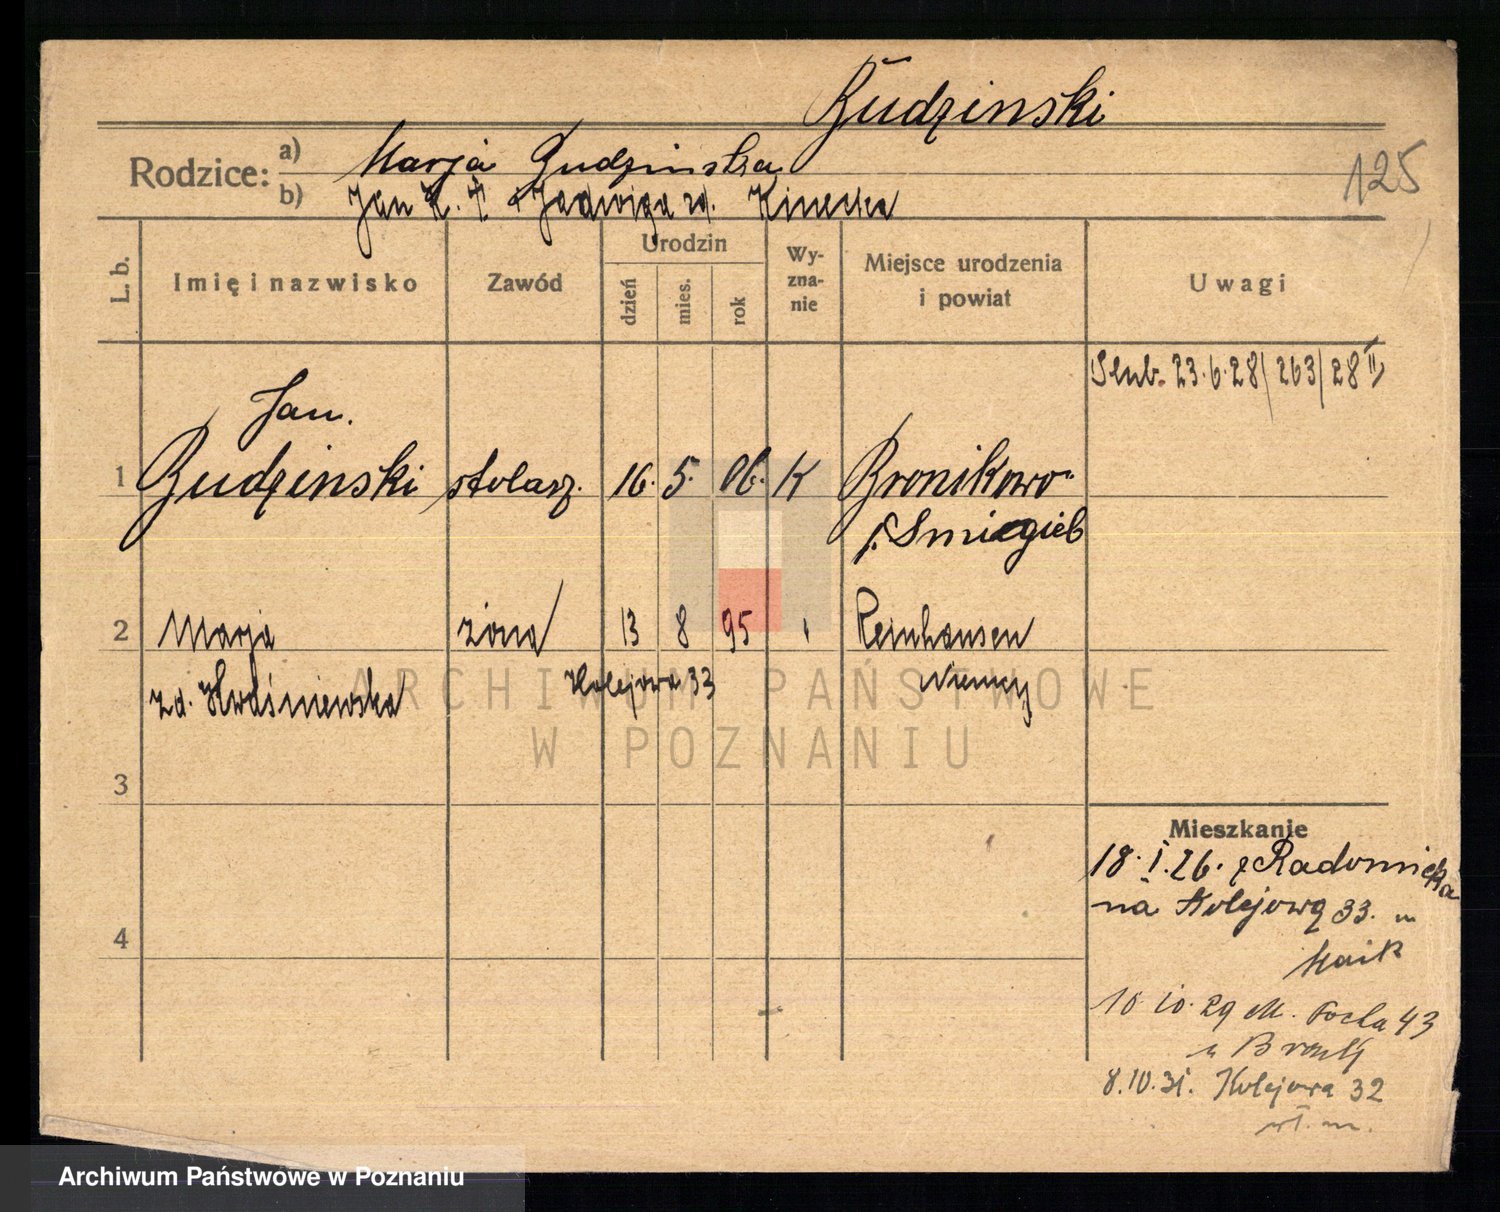 Budzinski
Rodzice: a) Marja Budzinska
b) Jan K. i Jadwiga zd.
125
L. b.
Imię i nazwisko
Zawód
Urodzin
dzień
mies.
rok
Wy-
zna-
nie
Miejsce urodzenia
i powiat
Uwagi
Ślub. 23.6.28 / 263/28 II
Jan.
1 Budzinski stolarz. 16. 5. 06. K Bronikowo
p. Smigiel
2 Marja żona 13 8 95 Reinhausen
zd. Kwaśniewska Kolejowa 33 Niemcy
ARCHIWUM PAŃSTWOWE
W POZNANIU
3
Mieszkanie
18. I. 26. z Radomicka
na Kolejową 33. u
4
10 10. 29 M. Focha 43
u
8.10.31. Kolejowa 32
wł. m.
Archiwum Państwowe w Poznaniu